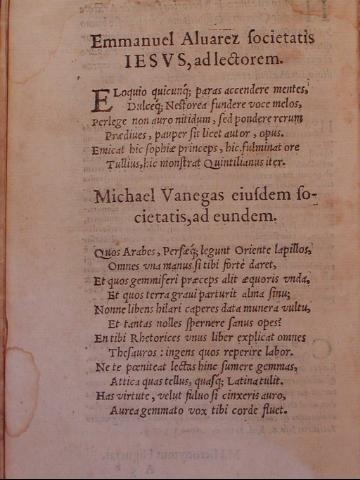 Emmanuel Aluarez societatis
IESVS, ad lectorem.
ELoquio quicunq; paras accendere mentes,
Dulceq; Nestorea fundere voce melos,
Perlege non auro nitidum, sed pondere rerum
Prædiues, pauper sit licet autor, opus.
Emicat hic sophiæ princeps, hic fulminat ore
Tullius, hic monstrat Quintilianus iter.
Michael Vanegas eiusdem so-
cietatis, ad eundem.
Quos Arabes, Persæq; legunt Oriente lapillos,
Omnes vna manus si tibi fortè daret,
Et quos gemmiferi præceps alit æquoris vnda,
Et quos terra graui parturit alma sinu;
Nonne libens hilari caperes data munera vultu,
Et tantas nolles spernere sanus opes?
En tibi Rhetorices vnus liber explicat omnes
Thesauros: ingens quos reperire labor.
Ne te pœniteat lectas hinc sumere gemmas,
Attica quas tellus, quasq; Latina tulit.
Has virtute, velut fuluo si cinxeris auro,
Aurea gemmato vox tibi corde fluet.